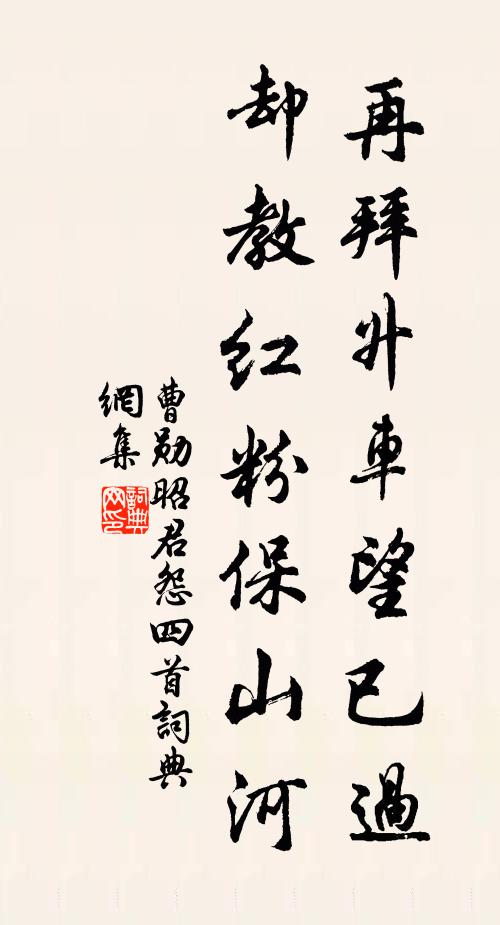 再拜升車望已過
却教红粉保山河
曹勛昭君怨四首詞典
網集
詞典
网印